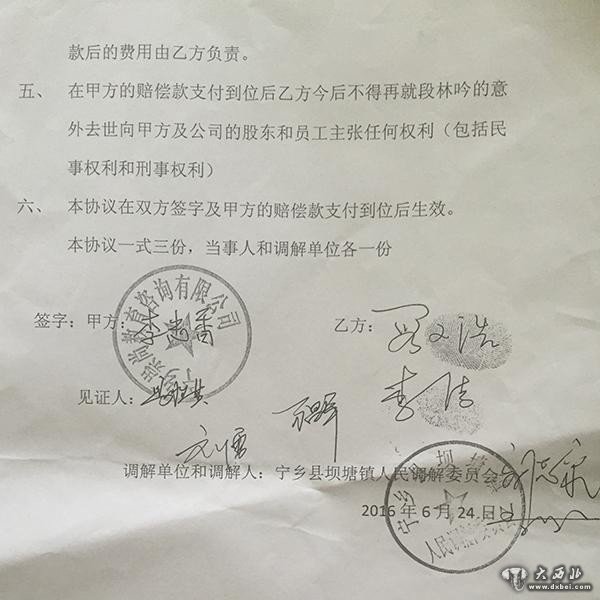 款后的费用由乙方负责。
五、 在甲方的赔偿款支付到位后乙方今后不得再就段林吟的意
外去世向甲方及公司的股东和员工主张任何权利（包括民
事权利和刑事权利）
六、 本协议在双方签字及甲方的赔偿款支付到位后生效。
本协议一式三份，当事人和调解单位各一份
签字：甲方： 乙方：
教育咨询有限公司
见证人：
调解单位和调解人：宁乡县坝塘镇人民调解委员会
2016 年 6 月 24 日
人民调解委员会
大西北
www.dxbei.com